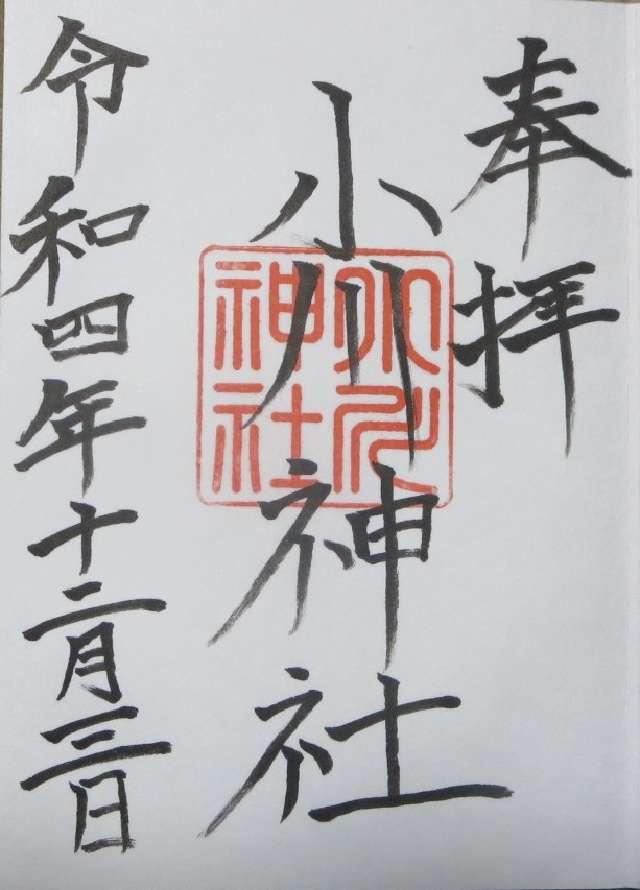 奉拝
小川神社
小川神社
令和四年十二月三日